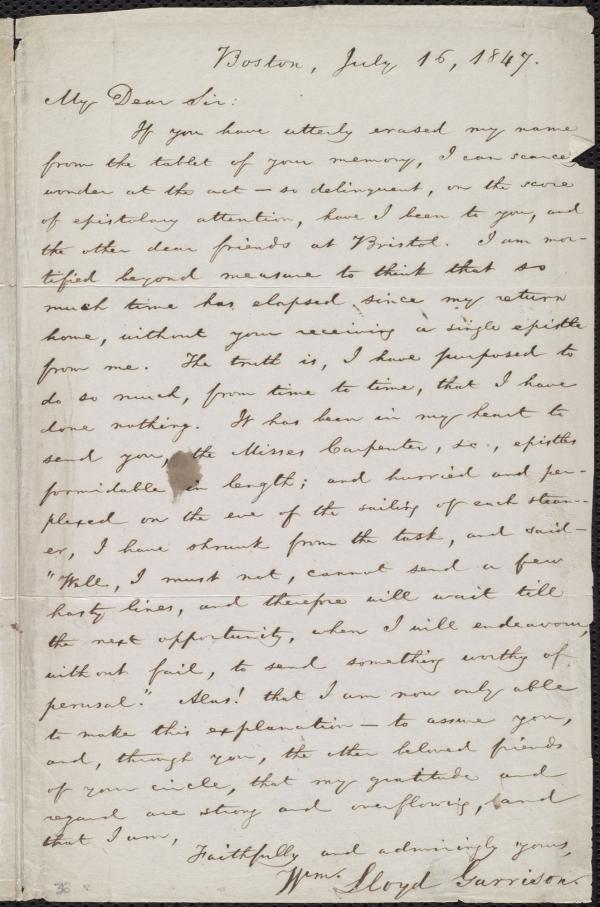 Boston, July 16, 1847.
My Dear Sir:
If you have utterly erased my name
from the tablet of your memory, I can scarcely
wonder at the act — so delinquent, on the score
of epistolary attention, have I been to you, and
the other dear friends at Bristol. I am mor-
tified beyond measure to think that so
much time has elapsed since my return
home, without your receiving a single epistle
from me. The truth is, I have purposed to
do so much, from time to time, that I have
done nothing. It has been in my heart to
send you, the Misses Carpenter, &c., epistles
formidable in length; and hurried and per-
plexed on the eve of the sailing of each steam-
er, I have shrunk from the task, and said—
"Well, I must not, cannot send a few
hasty lines, and therefore will wait till
the next opportunity, when I will endeavour,
without fail, to send something worthy of
perusal." Alas! that I am now only able
to make this explanation — to assure you,
and, through you, the other beloved friends
of your circle, that my gratitude and
regard are strong and overflowing, and
that I am,
Faithfully and admiringly yours,
Wm. Lloyd Garrison.
36